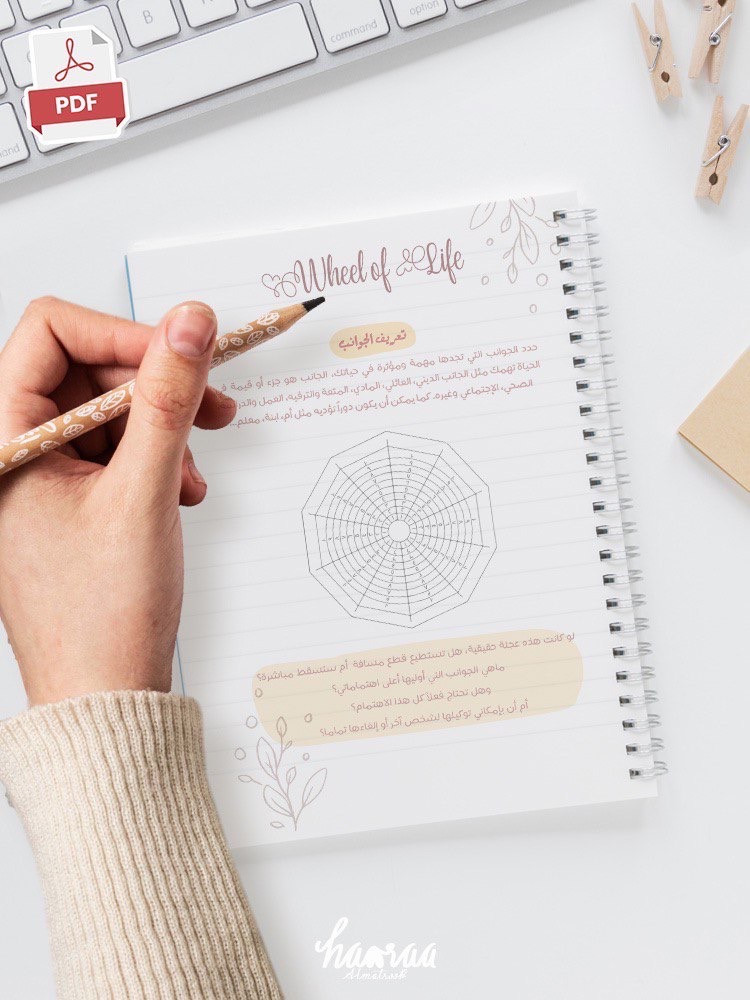 B
command
command
option
PDF
Wheel of Life
تعريف الجوانب
حدد الجوانب التي تجدها مهمة ومؤثرة في حياتك، الجانب هو جزء أو قيمة
الحياة تهمك مثل الجانب الديني، العائلي، المادي، المتعة والترفيه، العمل
الصحي، الإجتماعي وغيره. كما يمكن أن يكون دوراً تؤديه مثل أم، ابنة، معلم...
لو كانت هذه عجلة حقيقية، هل تستطيع قطع مسافة أم ستسقط مباشرة؟
ماهي الجوانب التي أوليها أعلى اهتماماتي؟
وهل تحتاج فعلاً كل هذا الاهتمام؟
أم أن بإمكاني توكيلها لشخص آخر أو إلغاءها تماماً؟